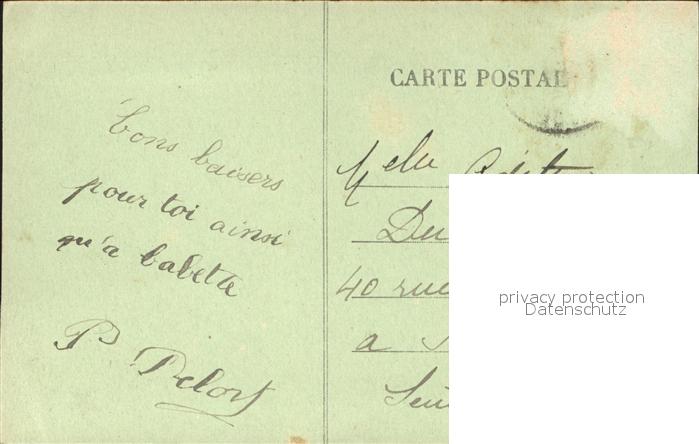 CARTE POSTAL
bons baisers
pour toi ainsi
qu'à babette
P. Delort
Melle
Du
40 rue
a
privacy protection
Datenschutz